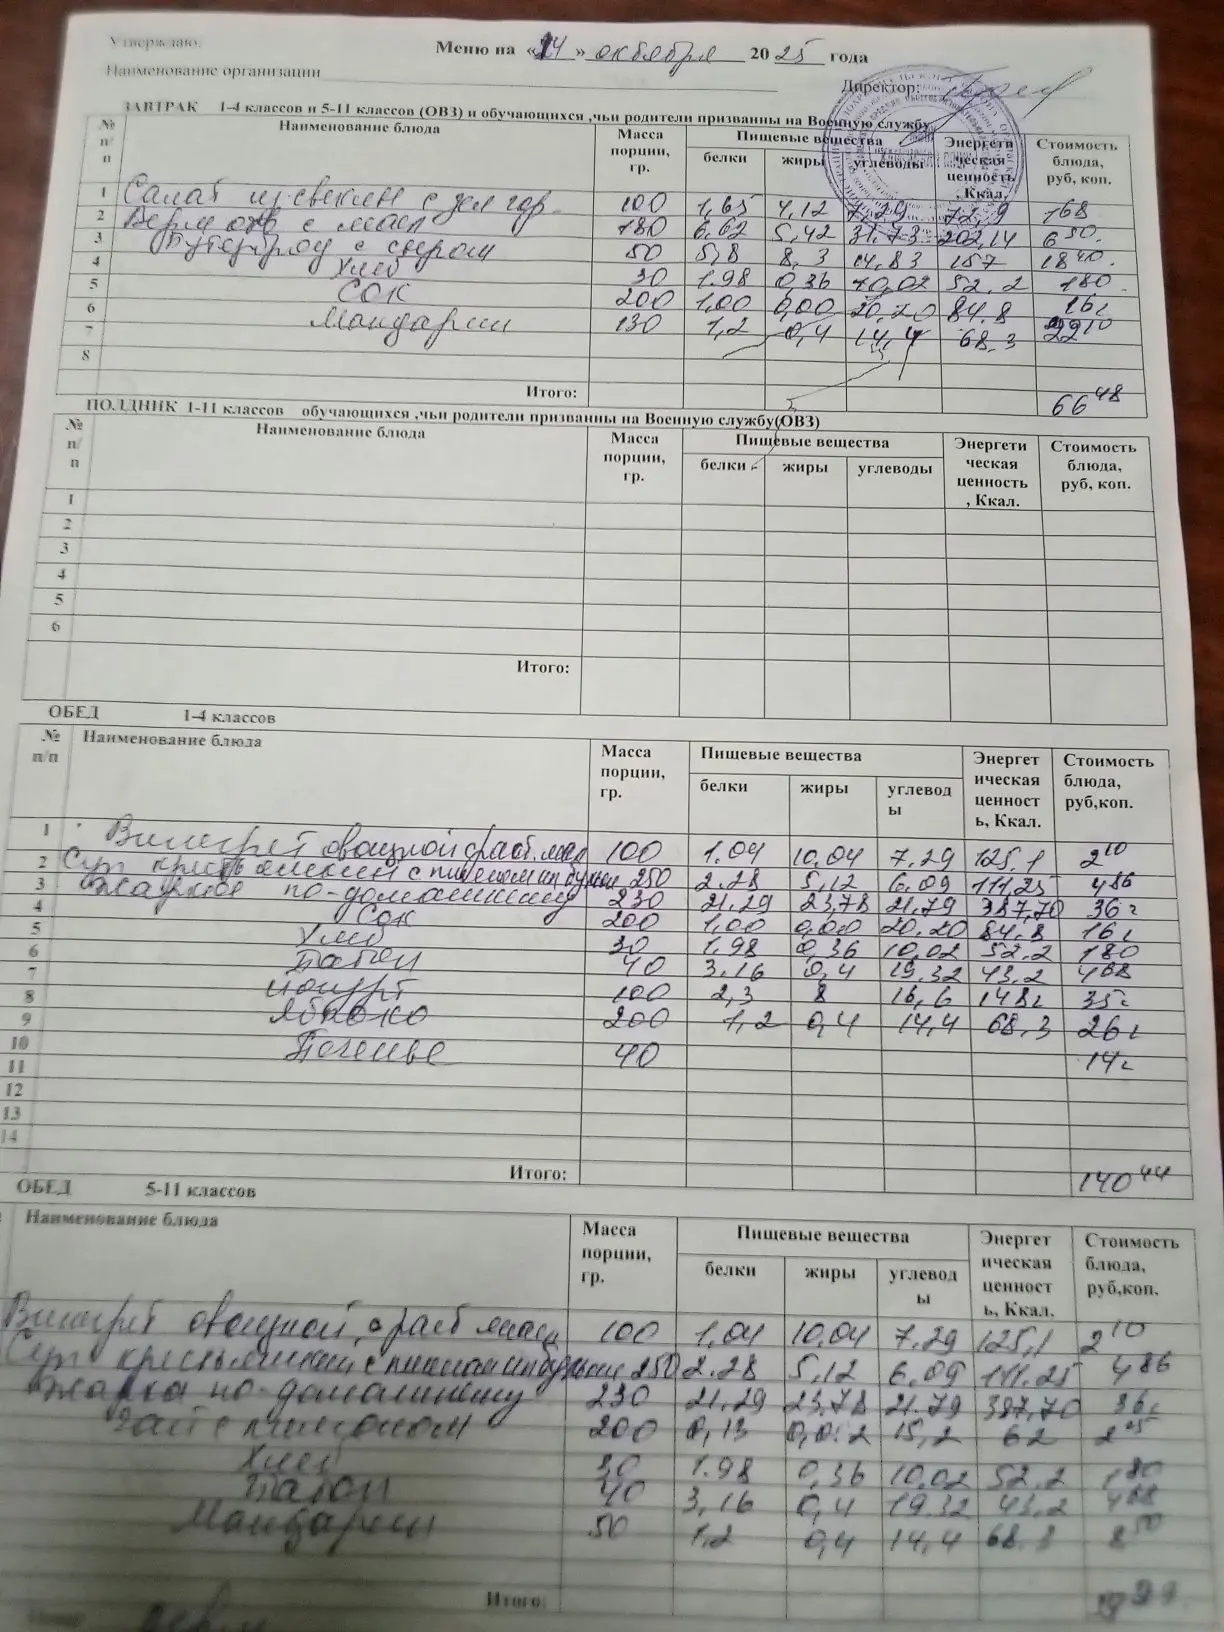 Утверждаю:
Меню на «14» октября 2025 года
Наименование организации
Директор:
ЗАВТРАК 1-4 классов и 5-11 классов (ОВЗ) и обучающихся ,чьи родители призванны на Военную службу
№ п/п Наименование блюда Масса порции, гр. Пищевые вещества Энергетическая ценность, Ккал. Стоимость блюда, руб, коп.
белки жиры углеводы
1 Салат из свеклы с зел гор 100 1,65 4,12 7,29 72,9 168
2 Верм отв с масл 180 6,62 5,42 31,73 202,14 6 50
3 Бутерброд с сыром 50 5,8 8,3 14,83 157 18 40
4 Хлеб 30 1.98 0,36 10,02 52.2 180
5 Сок 200 1,00 0,00 20,20 84.8 16
6 Мандарин 130 1,2 0,4 14,4 68.3 22 10
7
8
Итого: 66 48
ПОЛДНИК 1-11 классов обучающихся ,чьи родители призванны на Военную службу(ОВЗ)
№ п/п Наименование блюда Масса порции, гр. Пищевые вещества Энергетическая ценность, Ккал. Стоимость блюда, руб, коп.
белки жиры углеводы
1
2
3
4
5
6
Итого:
ОБЕД 1-4 классов
№ п/п Наименование блюда Масса порции, гр. Пищевые вещества Энергетическая ценность, Ккал. Стоимость блюда, руб,коп.
белки жиры углеводы
1 Винегрет овощной с раст.мал 100 1.04 10,04 7.29 125,1 2 10
2 Суп крестьянский с 250 2.28 5,12 6,09 111,25 4 86
3 Жаркое по-домашнему 230 21,29 23,78 21,79 387,70 36
4 Сок 200 1,00 0,00 20,20 84.8 16
5 Хлеб 30 1.98 0,36 10,02 52.2 180
6 Батон 40 3,16 0,4 19.32 43.2 4 68
7 Йогурт 100 2,3 8 16,6 148 35
8 Яблоко 200 1,2 0,4 14,4 68.3 26
9 Печенье 40 14
10
11
12
13
14
Итого: 140 44
ОБЕД 5-11 классов
Наименование блюда Масса порции, гр. Пищевые вещества Энергетическая ценность, Ккал. Стоимость блюда, руб,коп.
белки жиры углеводы
Винегрет овощной с раст масл 100 1,04 10,04 7.29 125,1 2 10
Суп крестьянский с 250 2.28 5,12 6,09 111.25 4 86
по-домашнему 230 21,29 23,78 21.79 387,70 36
Чай с лимоном 200 0,13 0,02 15,2 62 2 25
Хлеб 30 1.98 0,36 10,02 52.2 1 80
Батон 40 3,16 0,4 19.32 43.2 4 68
Мандарин 50 1,2 0,4 14,4 68.3 8 50
Итого: